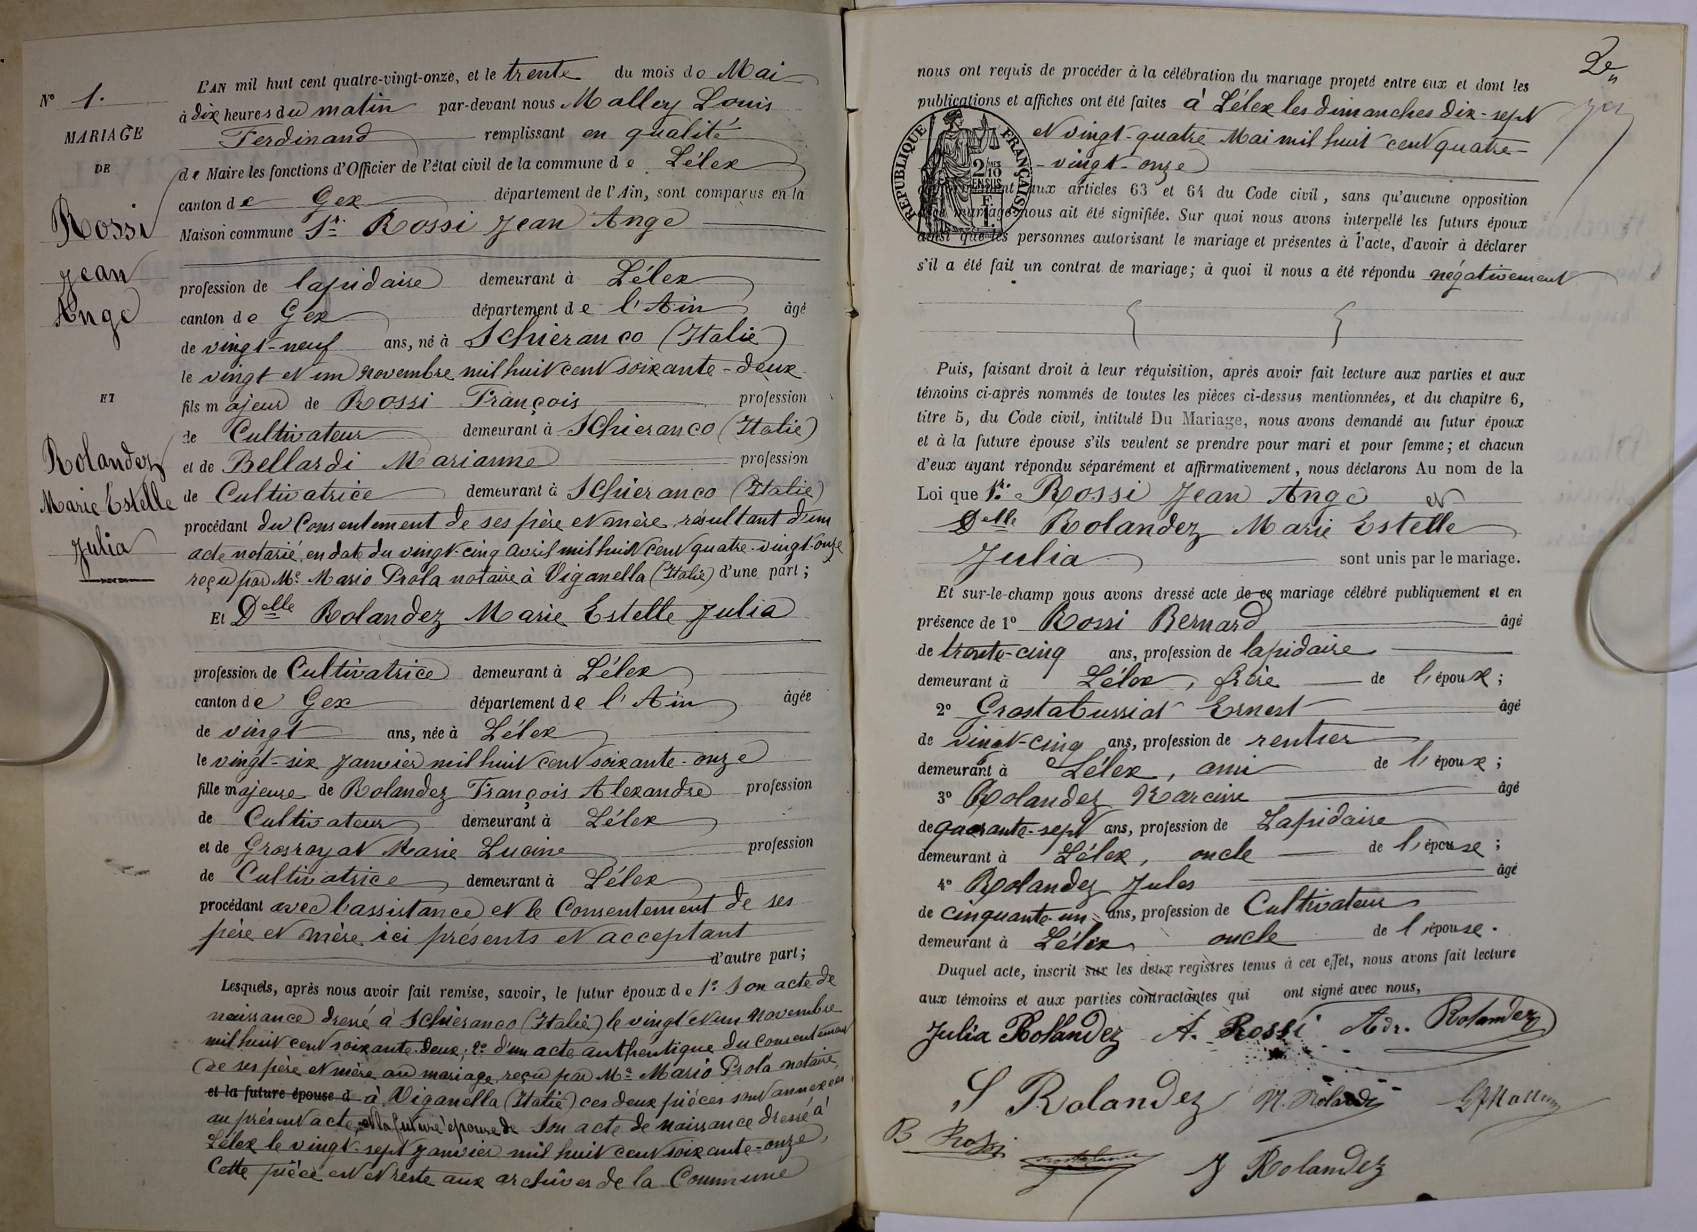 N° 1.
MARIAGE
DE
Rossi
Jean
Ange
ET
Rolandez
Marie Estelle
Julia
L'AN mil huit cent quatre-vingt-onze, et le trente du mois de Mai
à dix heures du matin par-devant nous Malley Louis
Ferdinand remplissant en qualité
de Maire les fonctions d'Officier de l'état civil de la commune de Lélex
canton de Gex département de l'Ain, sont comparus en la
Maison commune Sr. Rossi Jean Ange
profession de lapidaire demeurant à Lélex
canton de Gex département de l'Ain âgé
de vingt-neuf ans, né à Schieranco (Italie)
le vingt et un novembre mil huit cent soixante-deux
fils majeur de Rossi François profession
de Cultivateur demeurant à Schieranco (Italie)
et de Bellardi Marianne profession
de Cultivatrice demeurant à Schieranco (Italie)
procédant du Consentement de ses père et mère, résultant d'un
acte notarié en date du vingt-cinq avril mil huit cent quatre-vingt-onze
reçu par Me. Mario Prola notaire à Viganella (Italie) d'une part;
Et Delle Rolandez Marie Estelle Julia
profession de Cultivatrice demeurant à Lélex
canton de Gex département de l'Ain âgée
de vingt ans, née à Lélex
le vingt-six Janvier mil huit cent soixante-onze
fille majeure de Rolandez François Alexandre profession
de Cultivateur demeurant à Lélex
et de Grosroyat Marie Lucine profession
de Cultivatrice demeurant à Lélex
procédant avec l'assistance et le Consentement de ses
père et mère ici présents et acceptant
d'autre part;
Lesquels, après nous avoir fait remise, savoir, le futur époux de 1° Son acte de
naissance dressé à Schieranco (Italie) le vingt et un novembre
mil huit cent soixante-deux; 2° d'un acte authentique du consentement
de ses père et mère au mariage, reçu par Me. Mario Prola notaire,
et la future épouse d à Viganella (Italie) ces deux pièces sont annexées
au présent acte, et la future épouse de Son acte de naissance dressé à
Lélex le vingt-sept Janvier mil huit cent soixante-onze,
Cette pièce est et reste aux archives de la Commune
2e
nous ont requis de procéder à la célébration du mariage projeté entre eux et dont les
publications et affiches ont été faites à Lélex les dimanches dix-sept
et vingt-quatre Mai mil huit cent quatre-
-vingt-onze
RÉPUBLIQUE FRANÇAISE
2 10
EN SUS
aux articles 63 et 64 du Code civil, sans qu'aucune opposition
mariage nous ait été signifiée. Sur quoi nous avons interpellé les futurs époux
ainsi que les personnes autorisant le mariage et présentes à l'acte, d'avoir à déclarer
s'il a été fait un contrat de mariage; à quoi il nous a été répondu négativement
Puis, faisant droit à leur réquisition, après avoir fait lecture aux parties et aux
témoins ci-après nommés de toutes les pièces ci-dessus mentionnées, et du chapitre 6,
titre 5, du Code civil, intitulé Du Mariage, nous avons demandé au futur époux
et à la future épouse s'ils veulent se prendre pour mari et pour femme; et chacun
d'eux ayant répondu séparément et affirmativement, nous déclarons Au nom de la
Loi que Sr. Rossi Jean Ange et
Delle Rolandez Marie Estelle
Julia sont unis par le mariage.
Et sur-le-champ nous avons dressé acte de ce mariage célébré publiquement et en
présence de 1° Rossi Bernard âgé
de trente-cinq ans, profession de lapidaire
demeurant à Lélex, frère de l'époux;
2° Grostabussiat Ernest âgé
de vingt-cinq ans, profession de rentier
demeurant à Lélex, ami de l'époux;
3° Rolandez Narcisse âgé
de quarante-sept ans, profession de Lapidaire
demeurant à Lélex, oncle de l'épouse;
4° Rolandez Jules âgé
de cinquante-un ans, profession de Cultivateur
demeurant à Lélex oncle de l'épouse.
Duquel acte, inscrit sur les deux registres tenus à cet effet, nous avons fait lecture
aux témoins et aux parties contractantes qui ont signé avec nous,
Julia Rollandez A. Rossi Adr. Rolandez
S Rolandez N. Rolandez
B Rossi J Rolandez